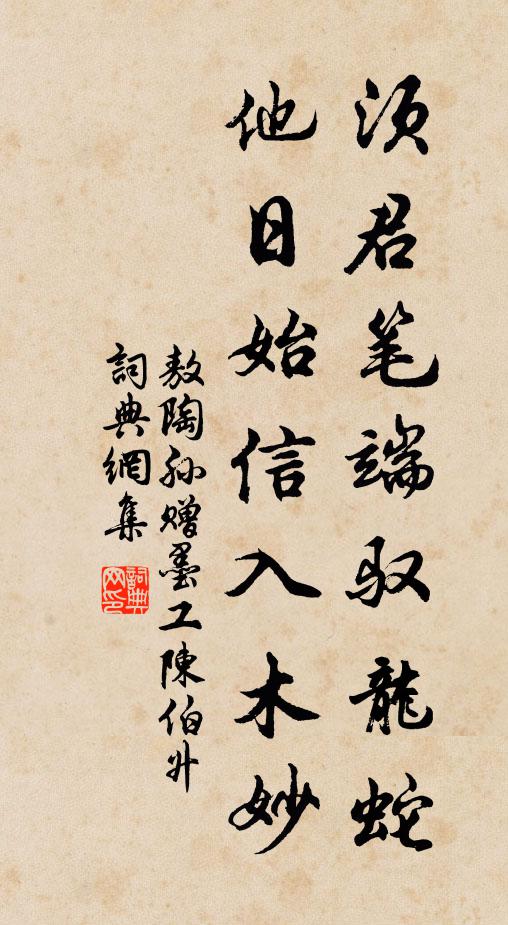 须君笔端驭龍蛇
他日始信入木妙
敖陶孙赠墨工陳伯升
詞典網集
詞典网印